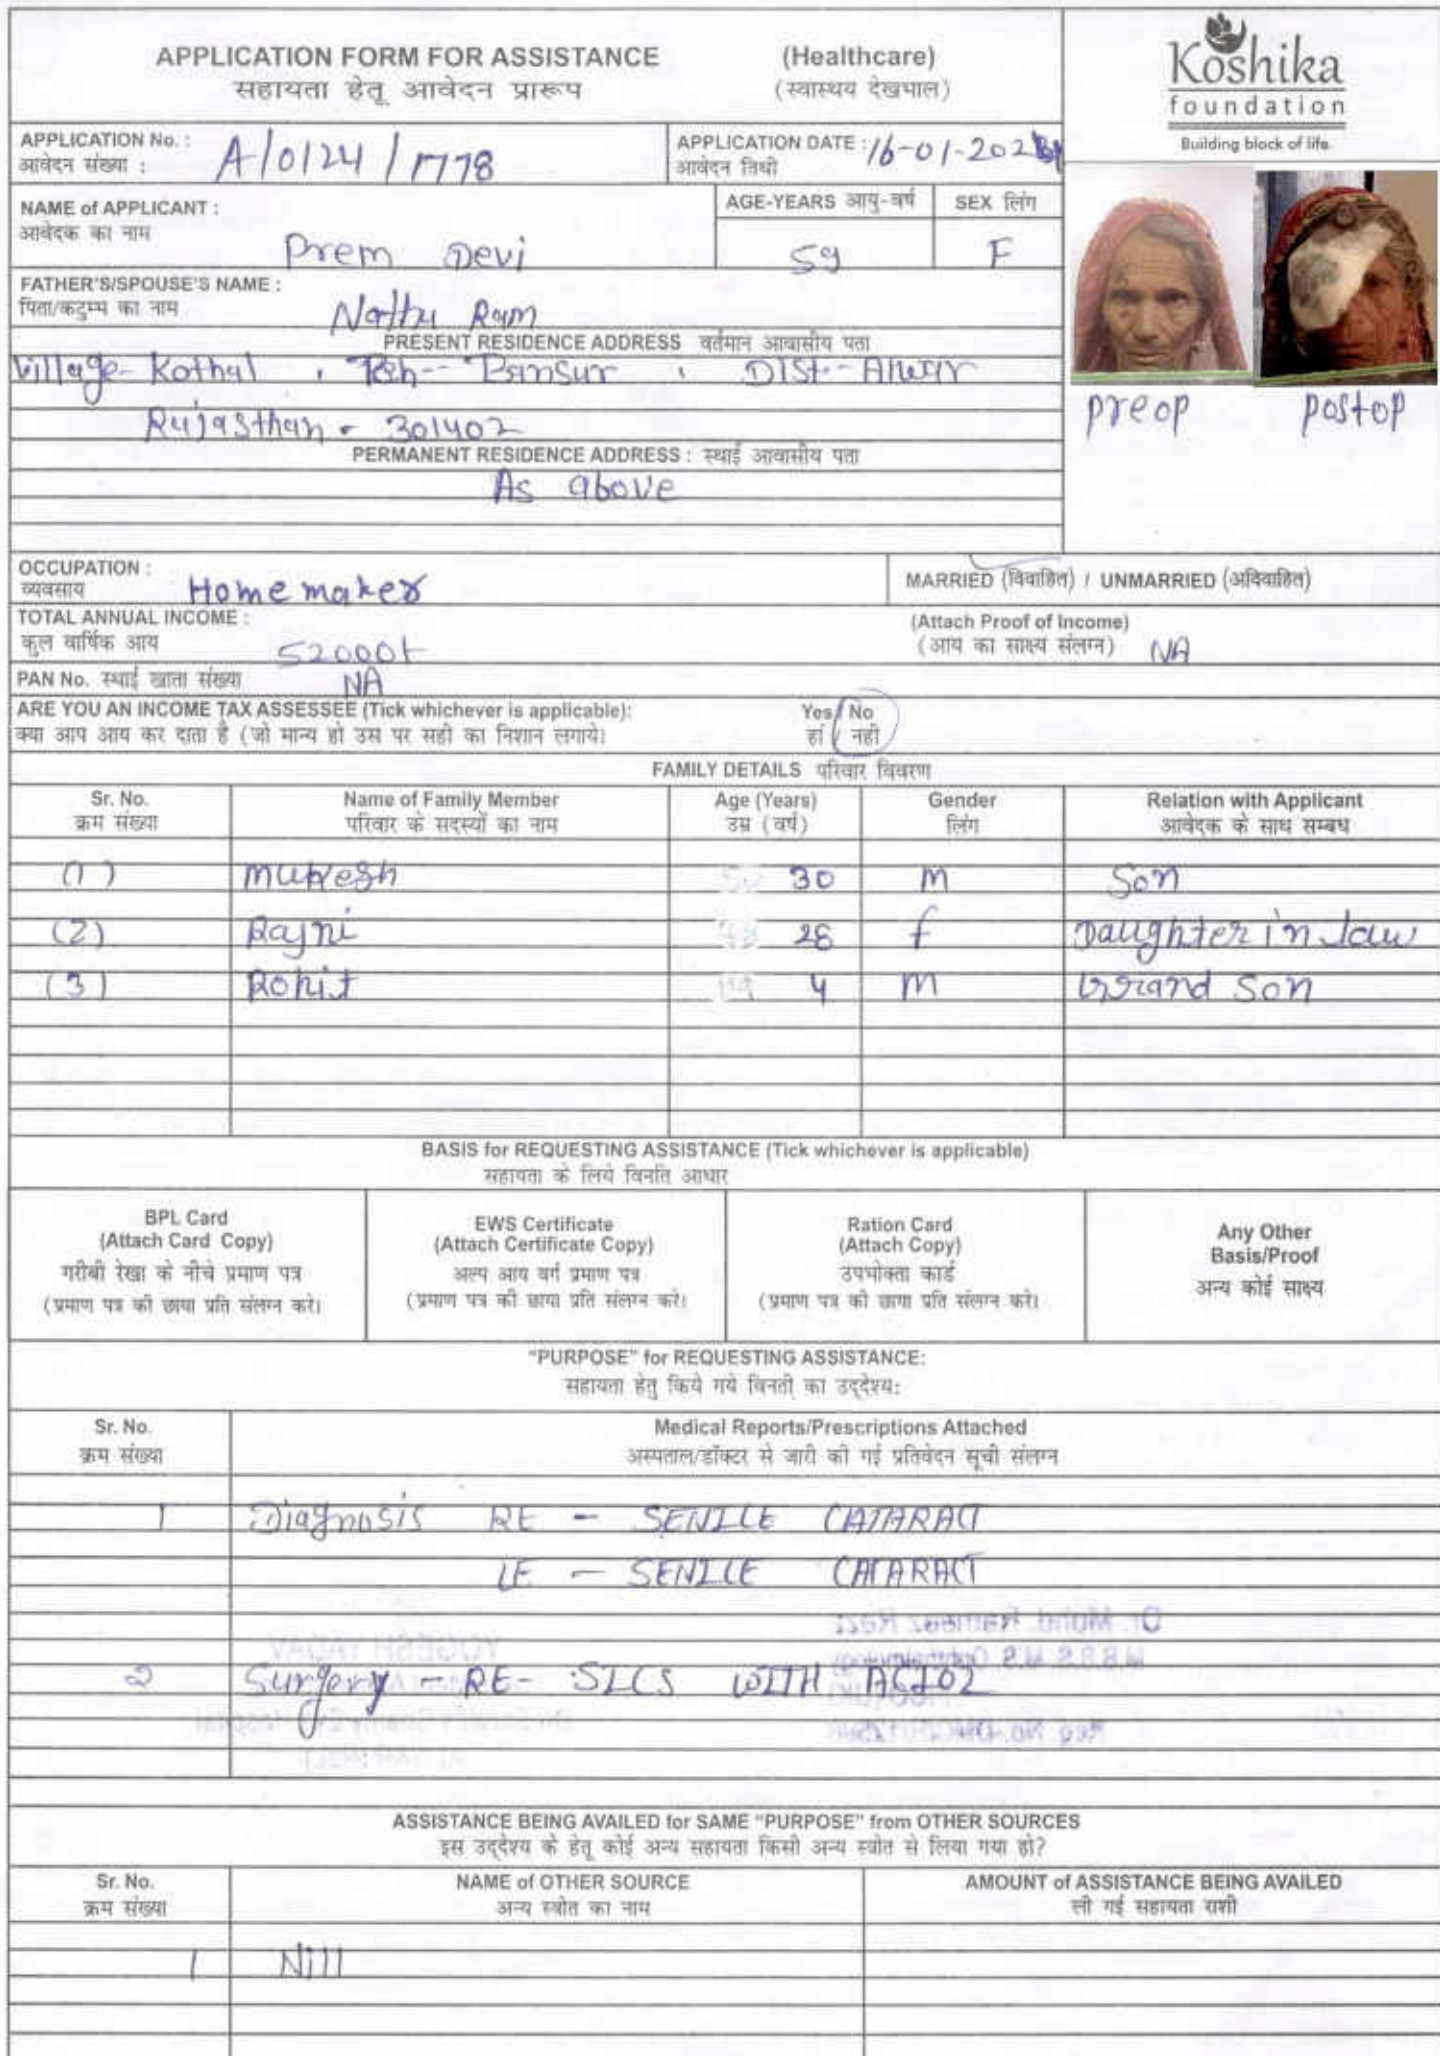 APPLICATION FORM FOR ASSISTANCE (Healthcare)
सहायता हेतू आवेदन प्रारूप (स्वास्थय देखभाल)
Koshika
foundation
Building block of life.
APPLICATION No. : A/0124/1778 APPLICATION DATE : 16-01-202
आवेदन संख्या : आवेदन तिथी
NAME of APPLICANT : AGE-YEARS आयु-वर्ष SEX लिंग
आवेदक का नाम
Prem Devi 59 F
FATHER'S/SPOUSE'S NAME :
पिता/कटुम्भ का नाम Nathu Ram
PRESENT RESIDENCE ADDRESS वर्तमान आवासीय पता
Village- Kothal , Teh-- Bansur , DISt-- Alwar
Rajasthan - 301402
preop postop
PERMANENT RESIDENCE ADDRESS : स्थाई आवासीय पता
As above
OCCUPATION :
व्यवसाय Homemaker MARRIED (विवाहित) / UNMARRIED (अविवाहित)
TOTAL ANNUAL INCOME : (Attach Proof of Income)
कुल वार्षिक आय 52000 (आय का साक्ष्य संलग्न) NA
PAN No. स्थाई खाता संख्या NA
ARE YOU AN INCOME TAX ASSESSEE (Tick whichever is applicable): Yes / No
क्या आप आय कर दाता है (जो मान्य हो उस पर सही का निशान लगाये। हां / नही
FAMILY DETAILS परिवार विवरण
Sr. No. Name of Family Member Age (Years) Gender Relation with Applicant
क्रम संख्या परिवार के सदस्यों का नाम उम्र (वर्ष) लिंग आवेदक के साथ सम्बध
(1) Mukesh 30 M Son
(2) Rajni 28 f Daughter in law
(3) Rohit 4 M Grand Son
BASIS for REQUESTING ASSISTANCE (Tick whichever is applicable)
सहायता के लिये विनति आधार
BPL Card
(Attach Card Copy)
गरीबी रेखा के नीचे प्रमाण पत्र
(प्रमाण पत्र की छाया प्रति संलग्न करे।
EWS Certificate
(Attach Certificate Copy)
अल्प आय वर्ग प्रमाण पत्र
(प्रमाण पत्र की छाया प्रति संलग्न करे।
Ration Card
(Attach Copy)
उपभोक्ता कार्ड
(प्रमाण पत्र की छाया प्रति संलग्न करे।
Any Other
Basis/Proof
अन्य कोई साक्ष्य
"PURPOSE" for REQUESTING ASSISTANCE:
सहायता हेतु किये गये विनती का उद्देश्य:
Sr. No. Medical Reports/Prescriptions Attached
क्रम संख्या अस्पताल/डॉक्टर से जारी की गई प्रतिवेदन सूची संलग्न
1 Diagnosis RE - SENILE CATARACT
LE - SENILE CATARACT
2 Surgery - RE- SICS WITH ACIOL
ASSISTANCE BEING AVAILED for SAME "PURPOSE" from OTHER SOURCES
इस उद्देश्य के हेतू कोई अन्य सहायता किसी अन्य स्त्रोत से लिया गया हो?
Sr. No. NAME of OTHER SOURCE AMOUNT of ASSISTANCE BEING AVAILED
क्रम संख्या अन्य स्त्रोत का नाम ली गई सहायता राशी
1 Nill